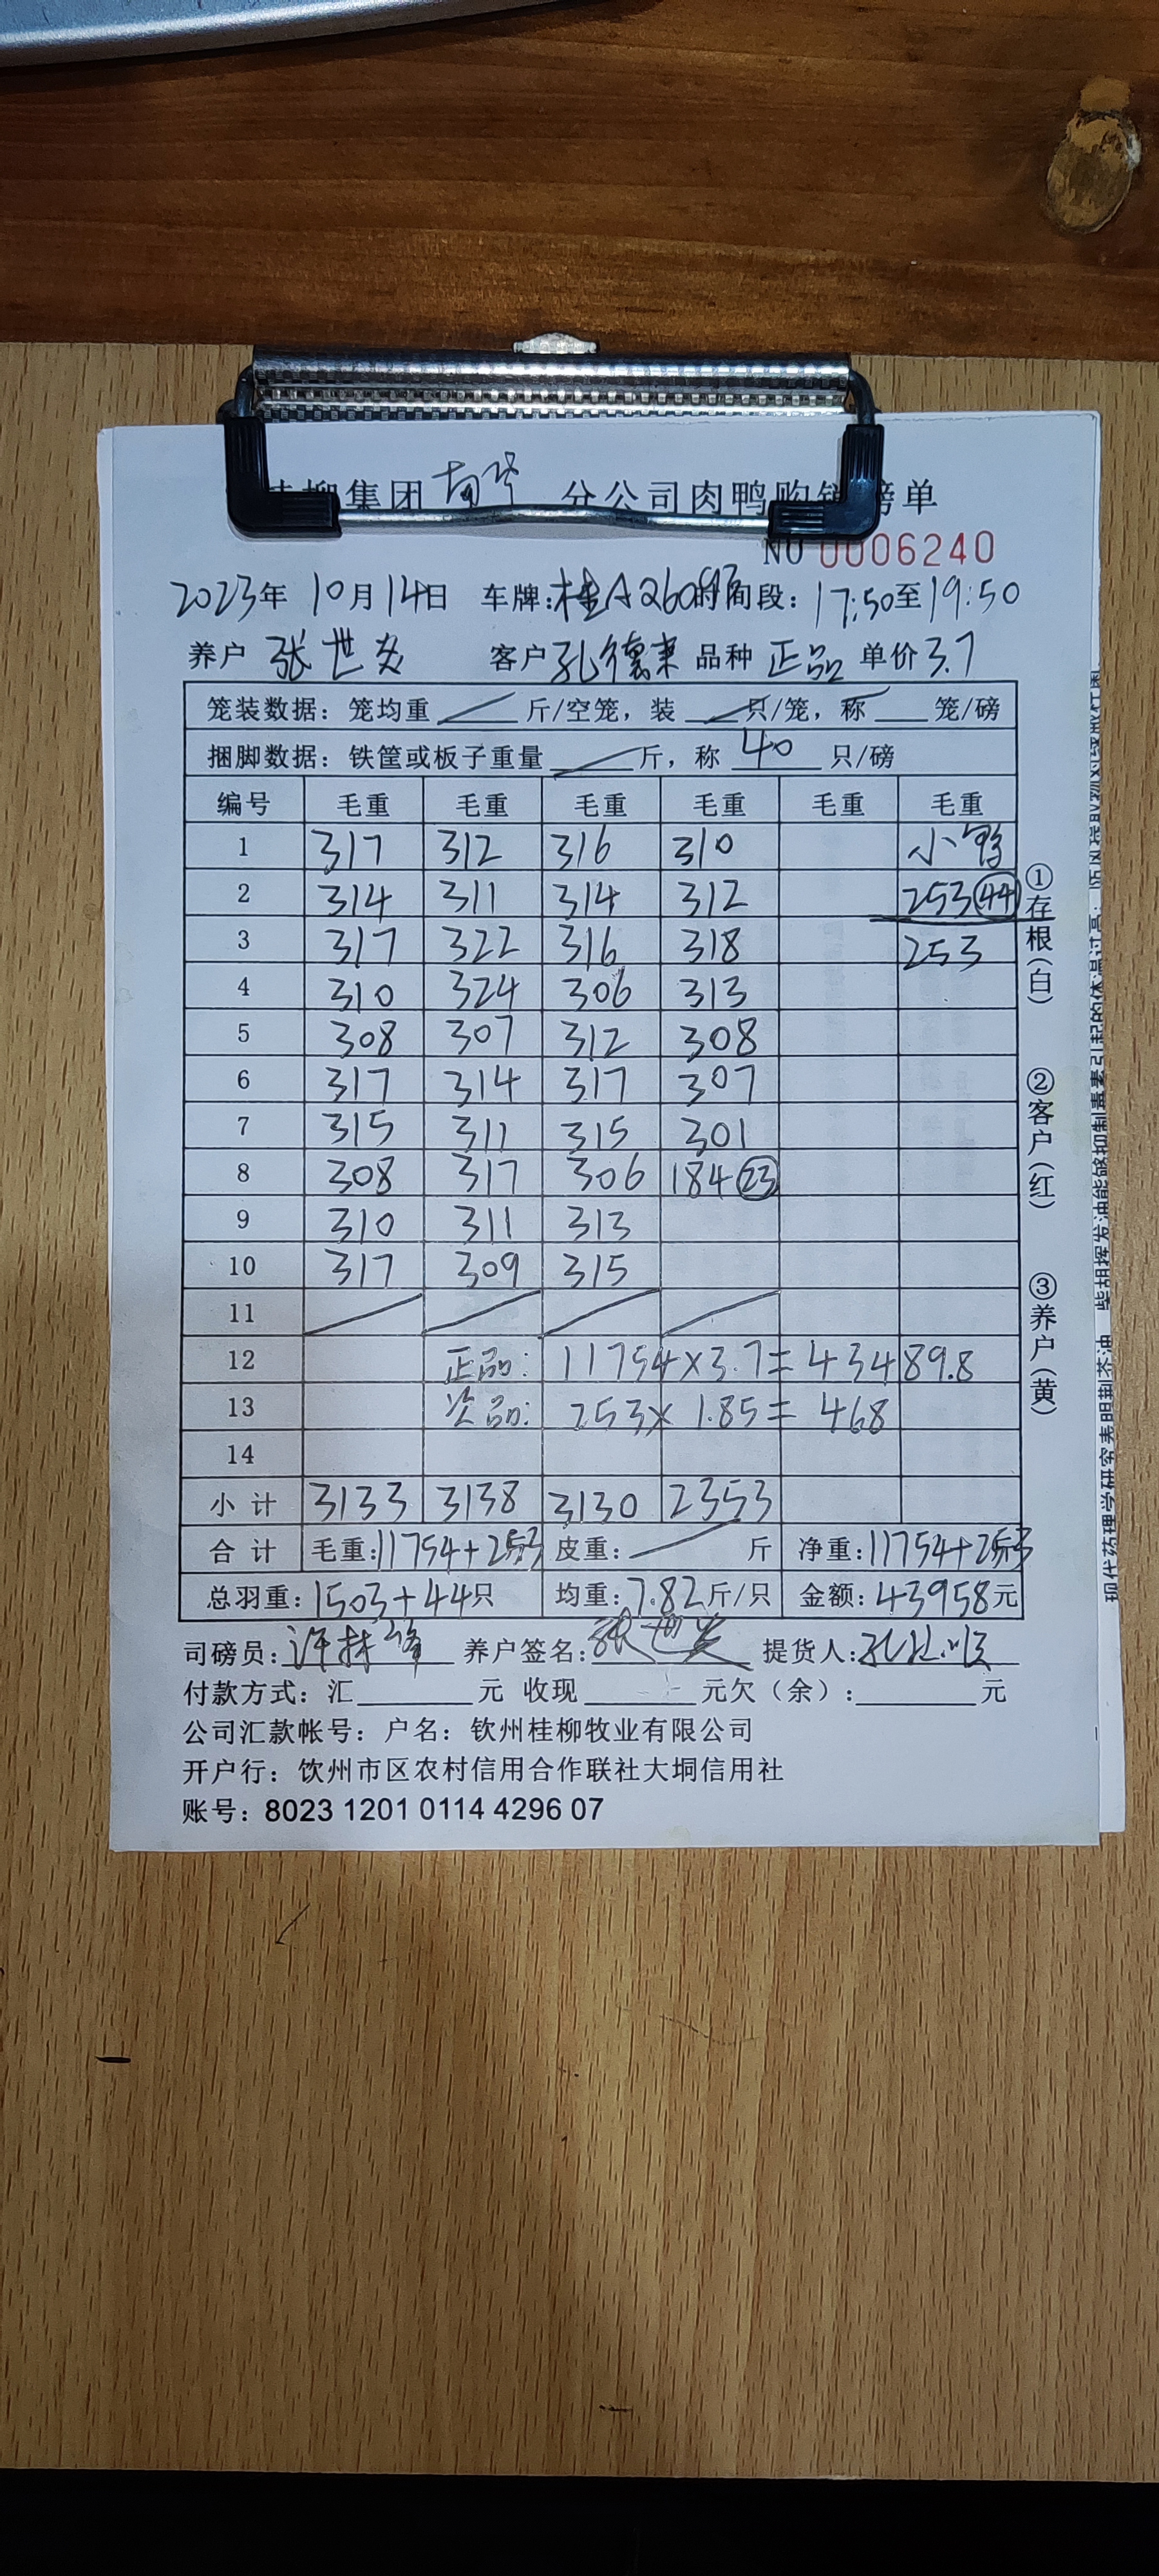 柳集团 分公司肉鸭购销磅单
NO 0006240
2023年 10月14日 车牌:桂A Q260 时间段: 17:50至19:50
养户 张世炎 客户 孔德来 品种 正品 单价 3.7
笼装数据: 笼均重 斤/空笼, 装 只/笼, 称 笼/磅
捆脚数据: 铁筐或板子重量 斤, 称 40 只/磅
编号 毛重 毛重 毛重 毛重 毛重 毛重
1 317 312 316 310 小鸭
2 314 311 314 312 253 44
3 317 322 316 318 253
4 310 324 306 313
5 308 307 312 308
6 317 314 317 307
7 315 311 315 301
8 308 317 306 184 23
9 310 311 313
10 317 309 315
11
12 正品: 11754×3.7=43489.8
13 次品: 253×1.85=468
14
小计 3133 3138 3130 2353
合计 毛重:11754+253 皮重: 斤 净重:11754+253
总羽重:1503+44只 均重:7.82斤/只 金额:43958元
司磅员: 养户签名:张世炎 提货人:
付款方式: 汇 元 收现 元欠(余): 元
公司汇款帐号: 户名: 钦州桂柳牧业有限公司
开户行: 饮州市区农村信用合作联社大垌信用社
账号: 8023 1201 0114 4296 07
①存根(白)
②客户(红)
③养户(黄)